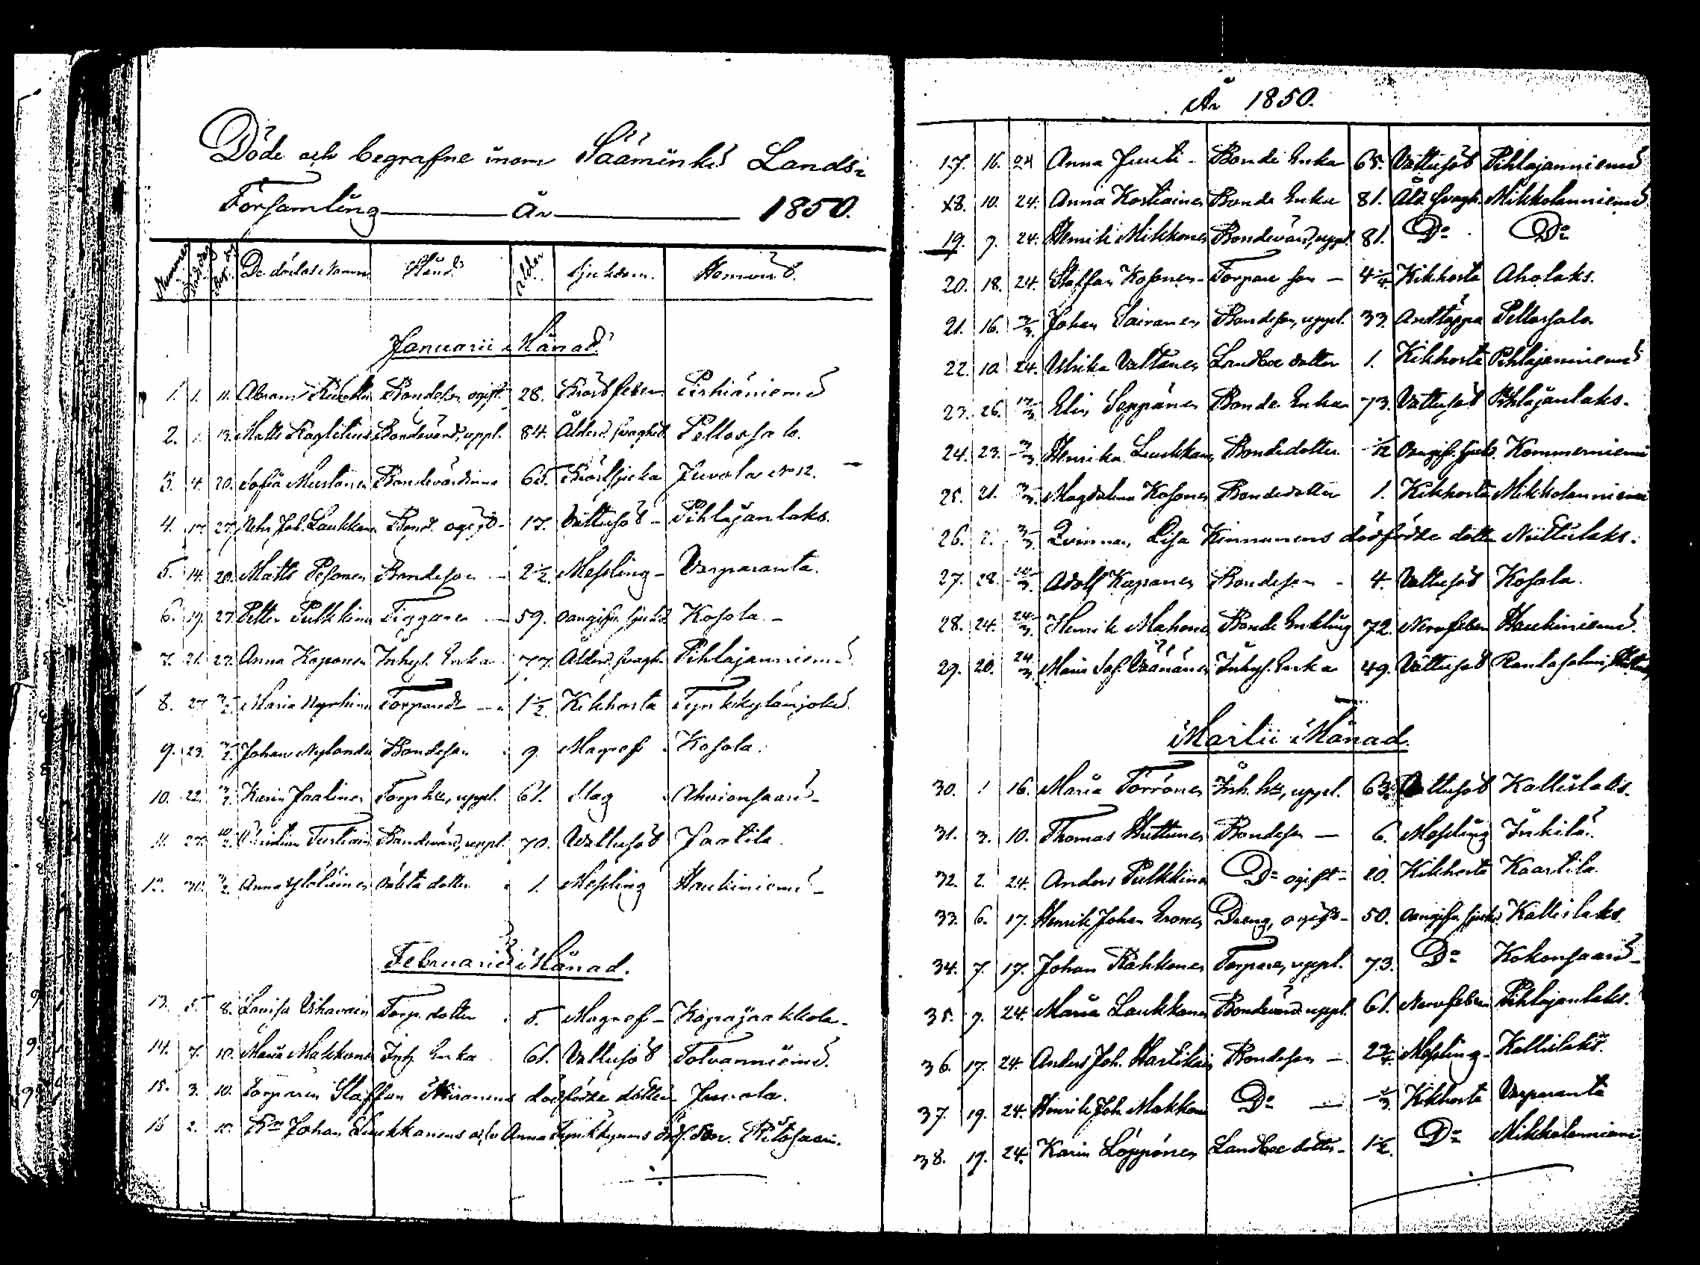 Döde och begrafne inom Sääminki Lands-
Församling År 1850.
Nummer De dödas namn Stånd Ålder Sjukdom. Hemvist.
Januarii Månad.
1. 1. 11. Abram Bondeson, ogift 28. Bröstfeber
2. 1. 13. Matts Bondevärd, uppl. 84. Ålderd. svaghet Pellossalo.
3. 4. 20. Sofia Mustonen Bondevärdinna 65. Bröstsjuka Juvola No 12.
4. 17. 27. Joh. Laukkan ogift 17. Vattusot Pihlajanlaks.
5. 14. 20. Matts Pesonen Bondeson 2 1/2 Messling Varparanta.
6. 19. 27. Petter Pulkkinen Tiggaren 59. oangifn sjukd Kosola.
7. 21. 27. Anna Kaponen Inhys. Enka 77. Ålderd. svagh. Pihlajanniemi
8. 27. 3/2. Maria Torparedr 1 1/2. Kikhosta Tynkkylänjoki.
9. 23. 3/2. Johan Nylander Bondeson 9. Magref Kosola.
10. 22. 3/2. Karin Jaatinen Torp hu, uppl. 61. Slag Ahvionsaari
11. 27. 10/2. Bondevärd, uppl. 70. Vattusot Jaatila.
12. 30. 3/2. Anna dotter 1. Messling Haukiniemi
Februarii Månad.
13. 5. 8. Lovisa Torp. dotter 5. Magref Kapajaakkola.
14. 7. 10. Maria Makkonen Inh. Enka 61. Vattusot Totvanniemi.
15. 3. 10. Torparen Staffan dödfödde dotter Juvola.
16 2. 10. Johan Laukkanens och Anna Tynkkynens Son.
År 1850.
17. 16. 24 Anna Juuti Bonde Enka 65. Vattusot Pihlajanniemi
18. 10. 24. Anna Kostiainen Bonde Enka 81. Åld. svagh. Mikkolanniemi
19. 9. 24. Henrik Mikkonen Bondevärd, uppl. 81. Do Do
20. 18. 24. Staffan Kosonen Torpare son 4 1/4 Kikhosta Aholaks.
21. 16. 3/3. Johan Sairanen Bondeson, uppl. 33. Andtäppa Pellossalo
22. 10 24. Ulrika Valtonen Landboe dotter 1. Kikhosta Pihlajaniemi
23. 26. 17/3. Elin Seppänen Bonde Enka 73. Vattusot Pihlajanlaks.
24. 23. 3/3. Henrika Luukkanen Bondedotter 1/12 Oangifn sjukd. Kommerniemi
25. 21. 3/3. Magdalena Kosonen Bondedotter 1. Kikhosta Mikkolanniemi
26. 2. 3/3 Qvinnan Lisa Kinnunens dödfödde dotter Niittulaks.
27. 28. 10/3. Adolf Kaponen Bondeson 4. Vattusot Kosola.
28. 24. 24/3. Henrik Mahonen Bonde Enkling 72. Nervfeber Haukiniemi.
29. 20. 24/3. Maria Sof. Väänänen Inhys. Enka 49. Vattusot Randasalmi
Martii Månad.
30. 1 16. Maria Törrönen Inh. hu, uppl. 63. Vattusot Kallislaks.
31. 3. 10. Thomas Huttunen Bondeson 6. Messling Inkilä.
32. 2. 24. Anders Pulkkinen Do ogift 20. Kikhosta Kaartila.
33. 6. 17. Henrik Johan Eronen Dreng, ogift 50. Oangifn sjukd Kallislaks.
34. 7. 17. Johan Torpare, uppl. 73. Do Kokonsaari
35. 9. 24. Maria Laukkanen Bondevärd uppl. 61. Nervfeber Pihlajanlaks.
36. 17. 24. Anders Joh. Hartikain Bondeson 2 3/4. Messling Kallislaks.
37. 19. 24. Henrik Joh. Makkonen Do 1/3. Kikhosta Varparanta
38. 17. 24. Karin Löppönen Landboe dotter 1 1/2. Do Mikkolaniemi